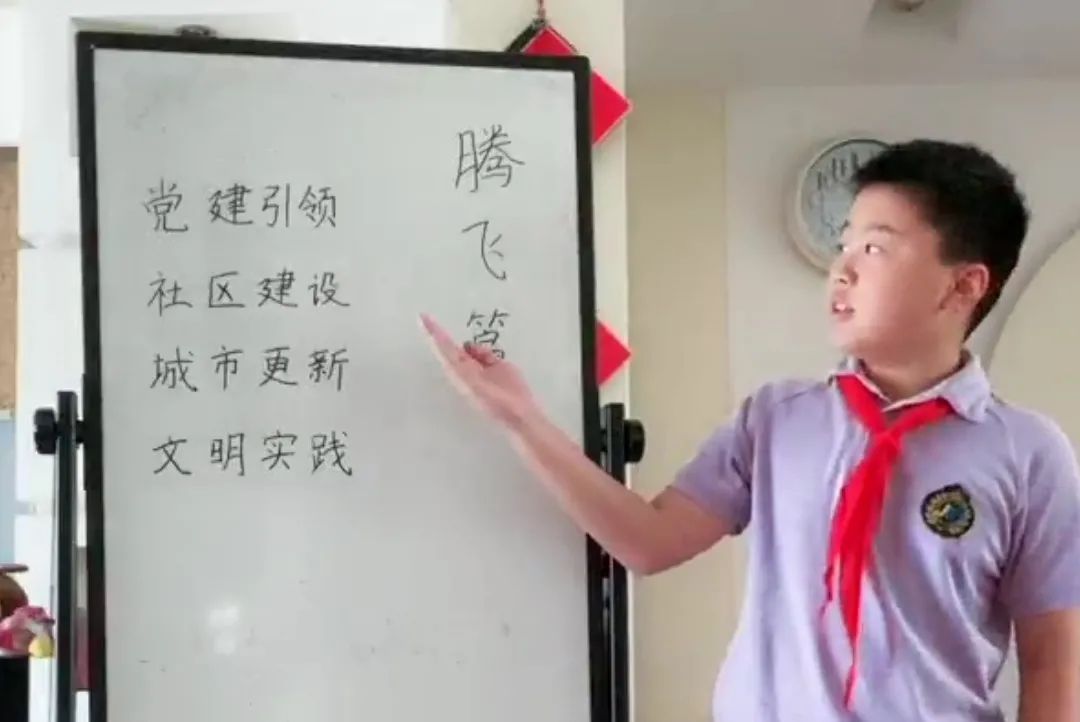 腾飞篇
党建引领
社区建设
城市更新
文明实践